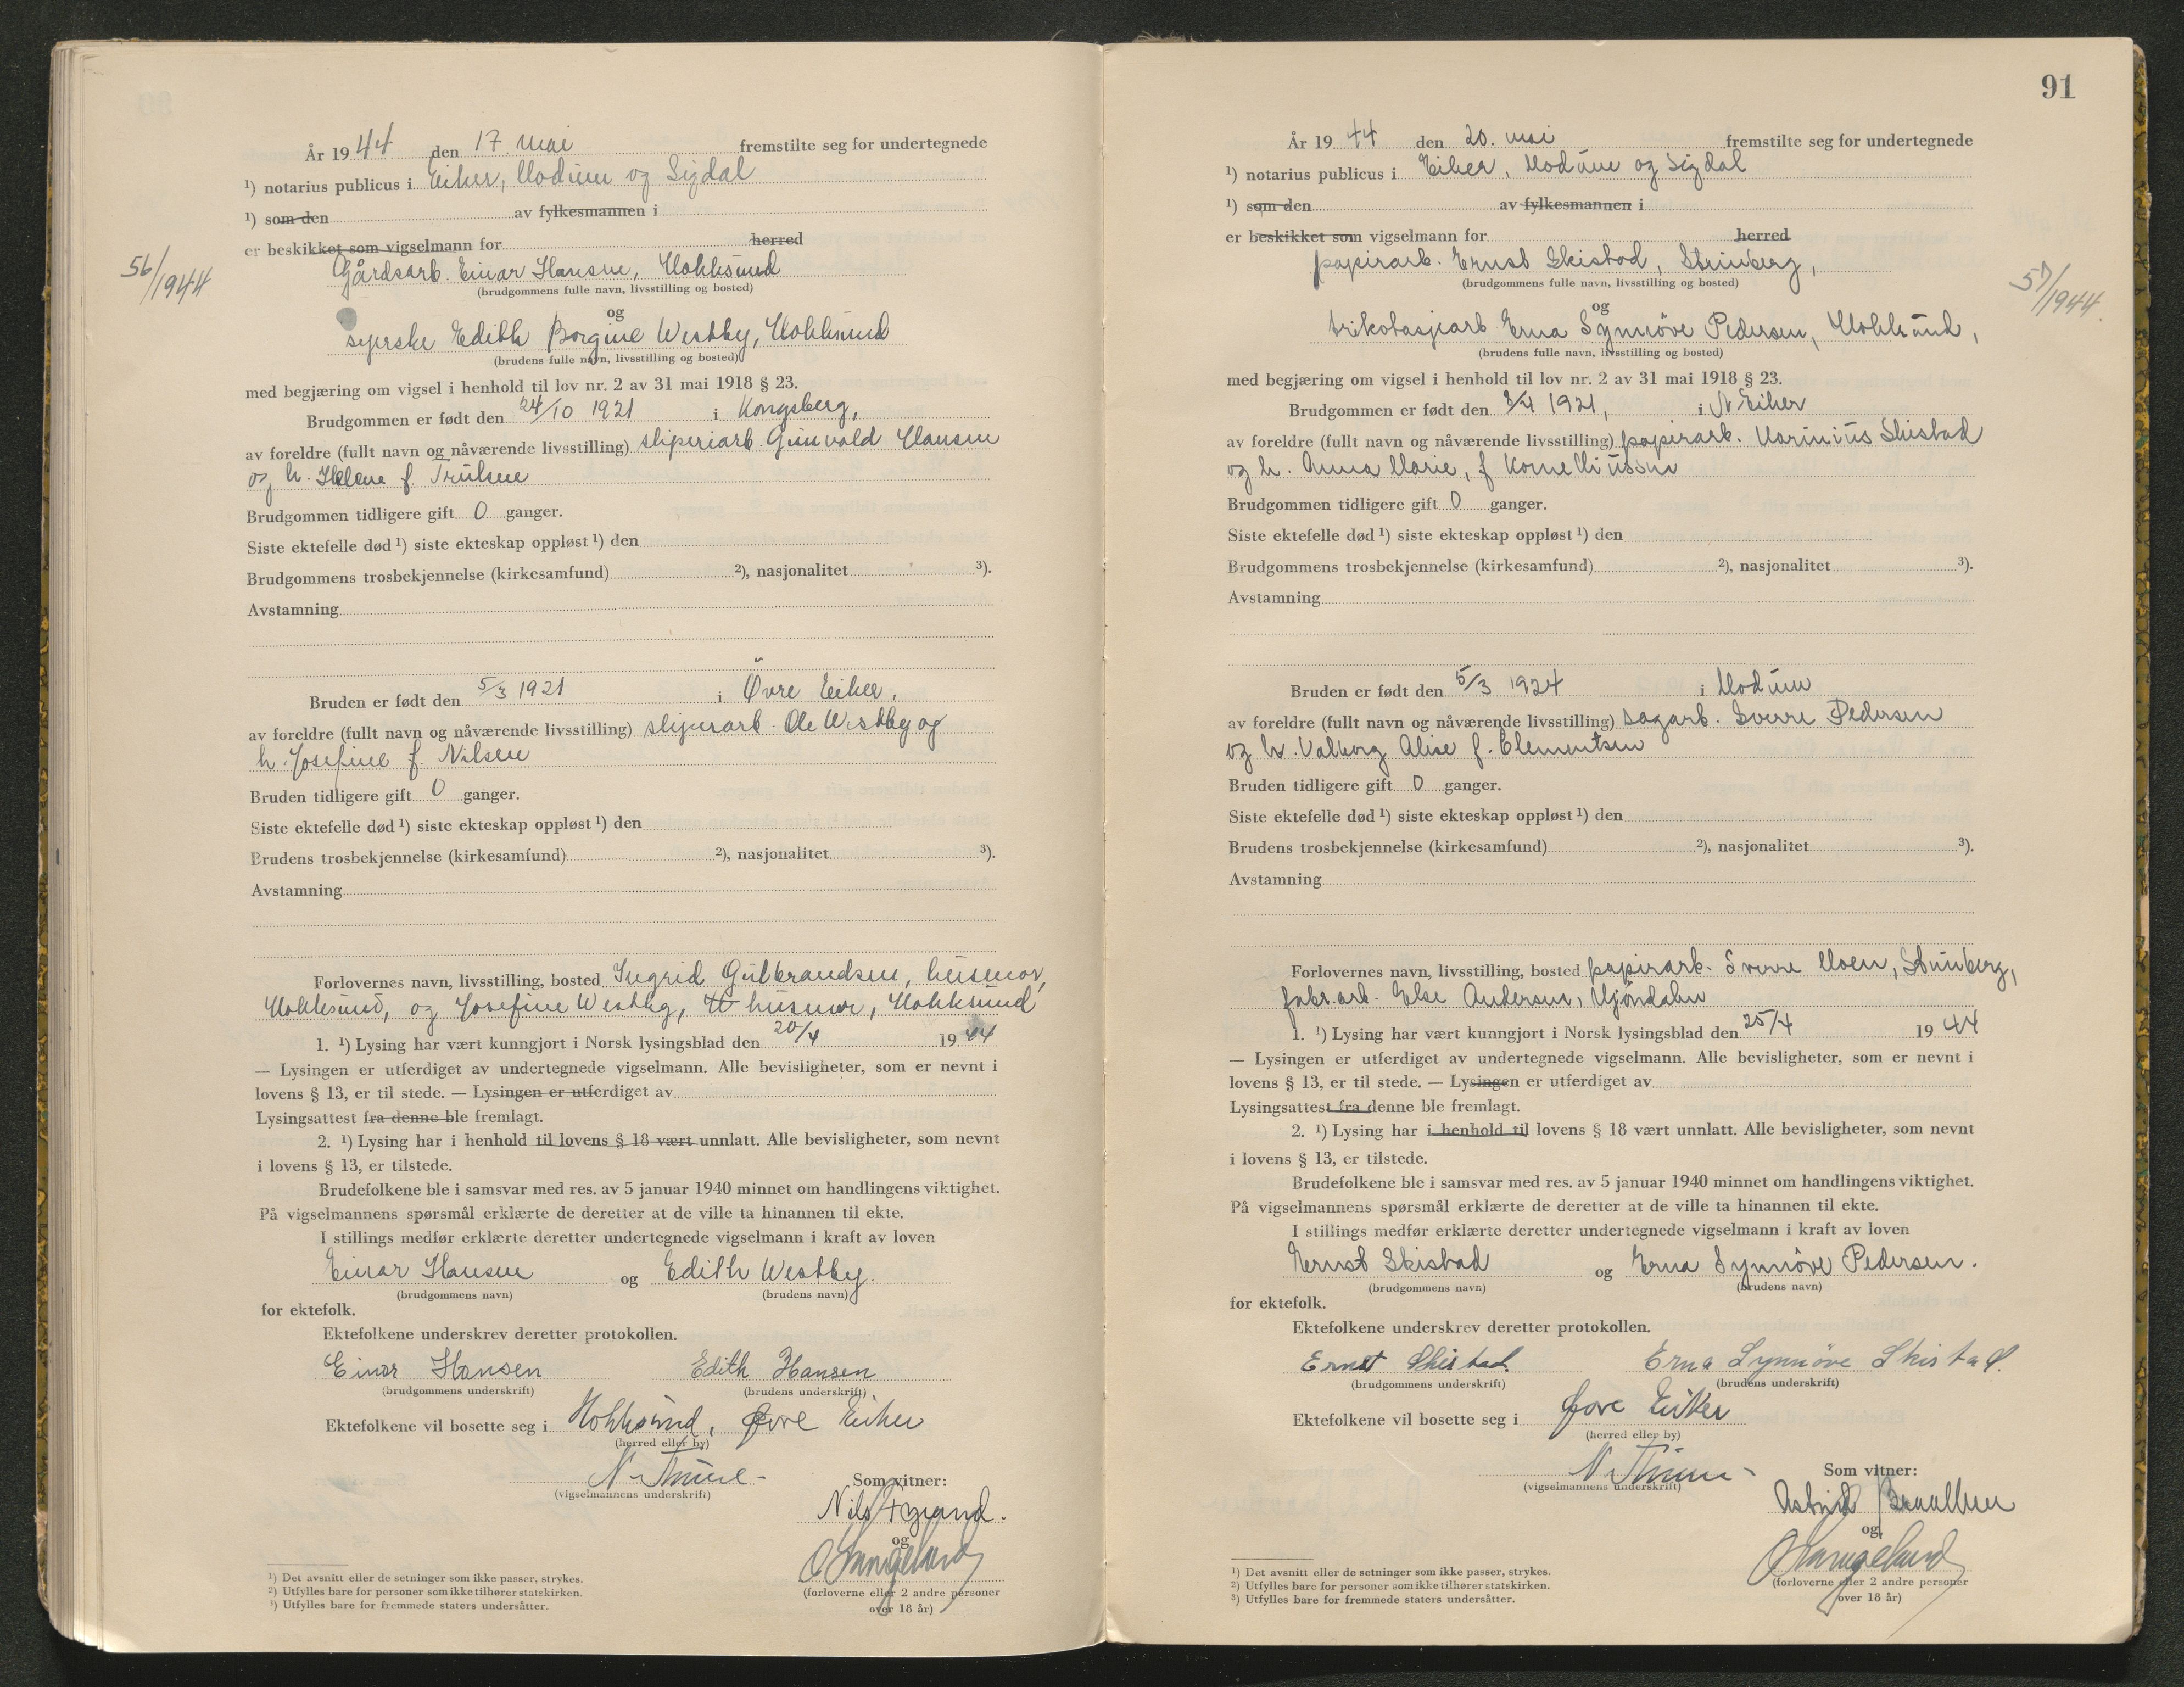 År 1944 den 17. mai fremstilte seg for undertegnede
¹) notarius publicus i Eiker, Modum og Sigdal
¹) som den av fylkesmannen i
er beskikket som vigselmann for herred
56/1944
Gårdsarb. Einar Hansen, Hokksund
(brudgommens fulle navn, livsstilling og bosted)
og
syerske Edith Borgine Westby, Hokksund
(brudens fulle navn, livsstilling og bosted)
med begjæring om vigsel i henhold til lov nr. 2 av 31 mai 1918 § 23.
Brudgommen er født den 24/10 1921 i Kongsberg,
av foreldre (fullt navn og nåværende livsstilling) sliperiarb. Gunvald Hansen
og h. Helene f. Trulsen
Brudgommen tidligere gift 0 ganger.
Siste ektefelle død ¹) siste ekteskap oppløst ¹) den
Brudgommens trosbekjennelse (kirkesamfund) ²), nasjonalitet ³).
Avstamning
Bruden er født den 5/3 1921 i Øvre Eiker,
av foreldre (fullt navn og nåværende livsstilling) sliperarb. Ole Westby og
h. Josefine f. Nilsen
Bruden tidligere gift 0 ganger.
Siste ektefelle død ¹) siste ekteskap oppløst ¹) den
Brudens trosbekjennelse (kirkesamfund) ²), nasjonalitet ³).
Avstamning
Forlovernes navn, livsstilling, bosted Ingrid Gulbrandsen, husmor,
Hokksund, og Josefine Westby, husmor, Hokksund
1. ¹) Lysing har vært kunngjort i Norsk lysingsblad den 20/4 1944
— Lysingen er utferdiget av undertegnede vigselmann. Alle bevisligheter, som er nevnt i
lovens § 13, er til stede. — Lysingen er utferdiget av
Lysingsattest fra denne ble fremlagt.
2. ¹) Lysing har i henhold til lovens § 18 vært unnlatt. Alle bevisligheter, som nevnt
i lovens § 13, er tilstede.
Brudefolkene ble i samsvar med res. av 5 januar 1940 minnet om handlingens viktighet.
På vigselmannens spørsmål erklærte de deretter at de ville ta hinannen til ekte.
I stillings medfør erklærte deretter undertegnede vigselmann i kraft av loven
Einar Hansen og Edith Westby.
(brudgommens navn) (brudens navn)
for ektefolk.
Ektefolkene underskrev deretter protokollen.
Einar Hansen Edith Hansen
(brudgommens underskrift) (brudens underskrift)
Ektefolkene vil bosette seg i Hokksund, Øvre Eiker
(herred eller by)
N. Thune
(vigselmannens underskrift)
Som vitner:
Nils
og
O Langelund
(forloverne eller 2 andre personer
over 18 år)
¹) Det avsnitt eller de setninger som ikke passer, strykes.
²) Utfylles bare for personer som ikke tilhører statskirken.
³) Utfylles bare for fremmede staters undersåtter.
91
År 1944 den 20. mai fremstilte seg for undertegnede
¹) notarius publicus i Eiker, Modum og Sigdal
¹) som den av fylkesmannen i
er beskikket som vigselmann for herred
57/1944.
papirarb. Ernst Skistad, Steinberg,
(brudgommens fulle navn, livsstilling og bosted)
og
trikotasjearb Erna Synnöve Pedersen, Hokksund,
(brudens fulle navn, livsstilling og bosted)
med begjæring om vigsel i henhold til lov nr. 2 av 31 mai 1918 § 23.
Brudgommen er født den 1921, i N. Eiker
av foreldre (fullt navn og nåværende livsstilling) papirarb. Marinius Skistad
og h. Anna Marie, f Kornelliussen
Brudgommen tidligere gift 0 ganger.
Siste ektefelle død ¹) siste ekteskap oppløst ¹) den
Brudgommens trosbekjennelse (kirkesamfund) ²), nasjonalitet ³).
Avstamning
Bruden er født den 5/3 1924 i Modum
av foreldre (fullt navn og nåværende livsstilling) sagarb. Sverre Pedersen
og h. Valborg Alise f. Clementsen
Bruden tidligere gift 0 ganger.
Siste ektefelle død ¹) siste ekteskap oppløst ¹) den
Brudens trosbekjennelse (kirkesamfund) ²), nasjonalitet ³).
Avstamning
Forlovernes navn, livsstilling, bosted papirarb. Sverre Moen, Steinberg,
fabr.arb. Else Andersen, Mjöndalen
1. ¹) Lysing har vært kunngjort i Norsk lysingsblad den 25/4 1944
— Lysingen er utferdiget av undertegnede vigselmann. Alle bevisligheter, som er nevnt i
lovens § 13, er til stede. — Lysingen er utferdiget av
Lysingsattest fra denne ble fremlagt.
2. ¹) Lysing har i henhold til lovens § 18 vært unnlatt. Alle bevisligheter, som nevnt
i lovens § 13, er tilstede.
Brudefolkene ble i samsvar med res. av 5 januar 1940 minnet om handlingens viktighet.
På vigselmannens spørsmål erklærte de deretter at de ville ta hinannen til ekte.
I stillings medfør erklærte deretter undertegnede vigselmann i kraft av loven
Ernst Skistad og Erna Synnöve Pedersen.
(brudgommens navn) (brudens navn)
for ektefolk.
Ektefolkene underskrev deretter protokollen.
Ernst Skistad. Erna Synnöve Skistad.
(brudgommens underskrift) (brudens underskrift)
Ektefolkene vil bosette seg i Øvre Eiker
(herred eller by)
N. Thune
(vigselmannens underskrift)
Som vitner:
Astrid
og
O Langelund
(forloverne eller 2 andre personer
over 18 år)
¹) Det avsnitt eller de setninger som ikke passer, strykes.
²) Utfylles bare for personer som ikke tilhører statskirken.
³) Utfylles bare for fremmede staters undersåtter.